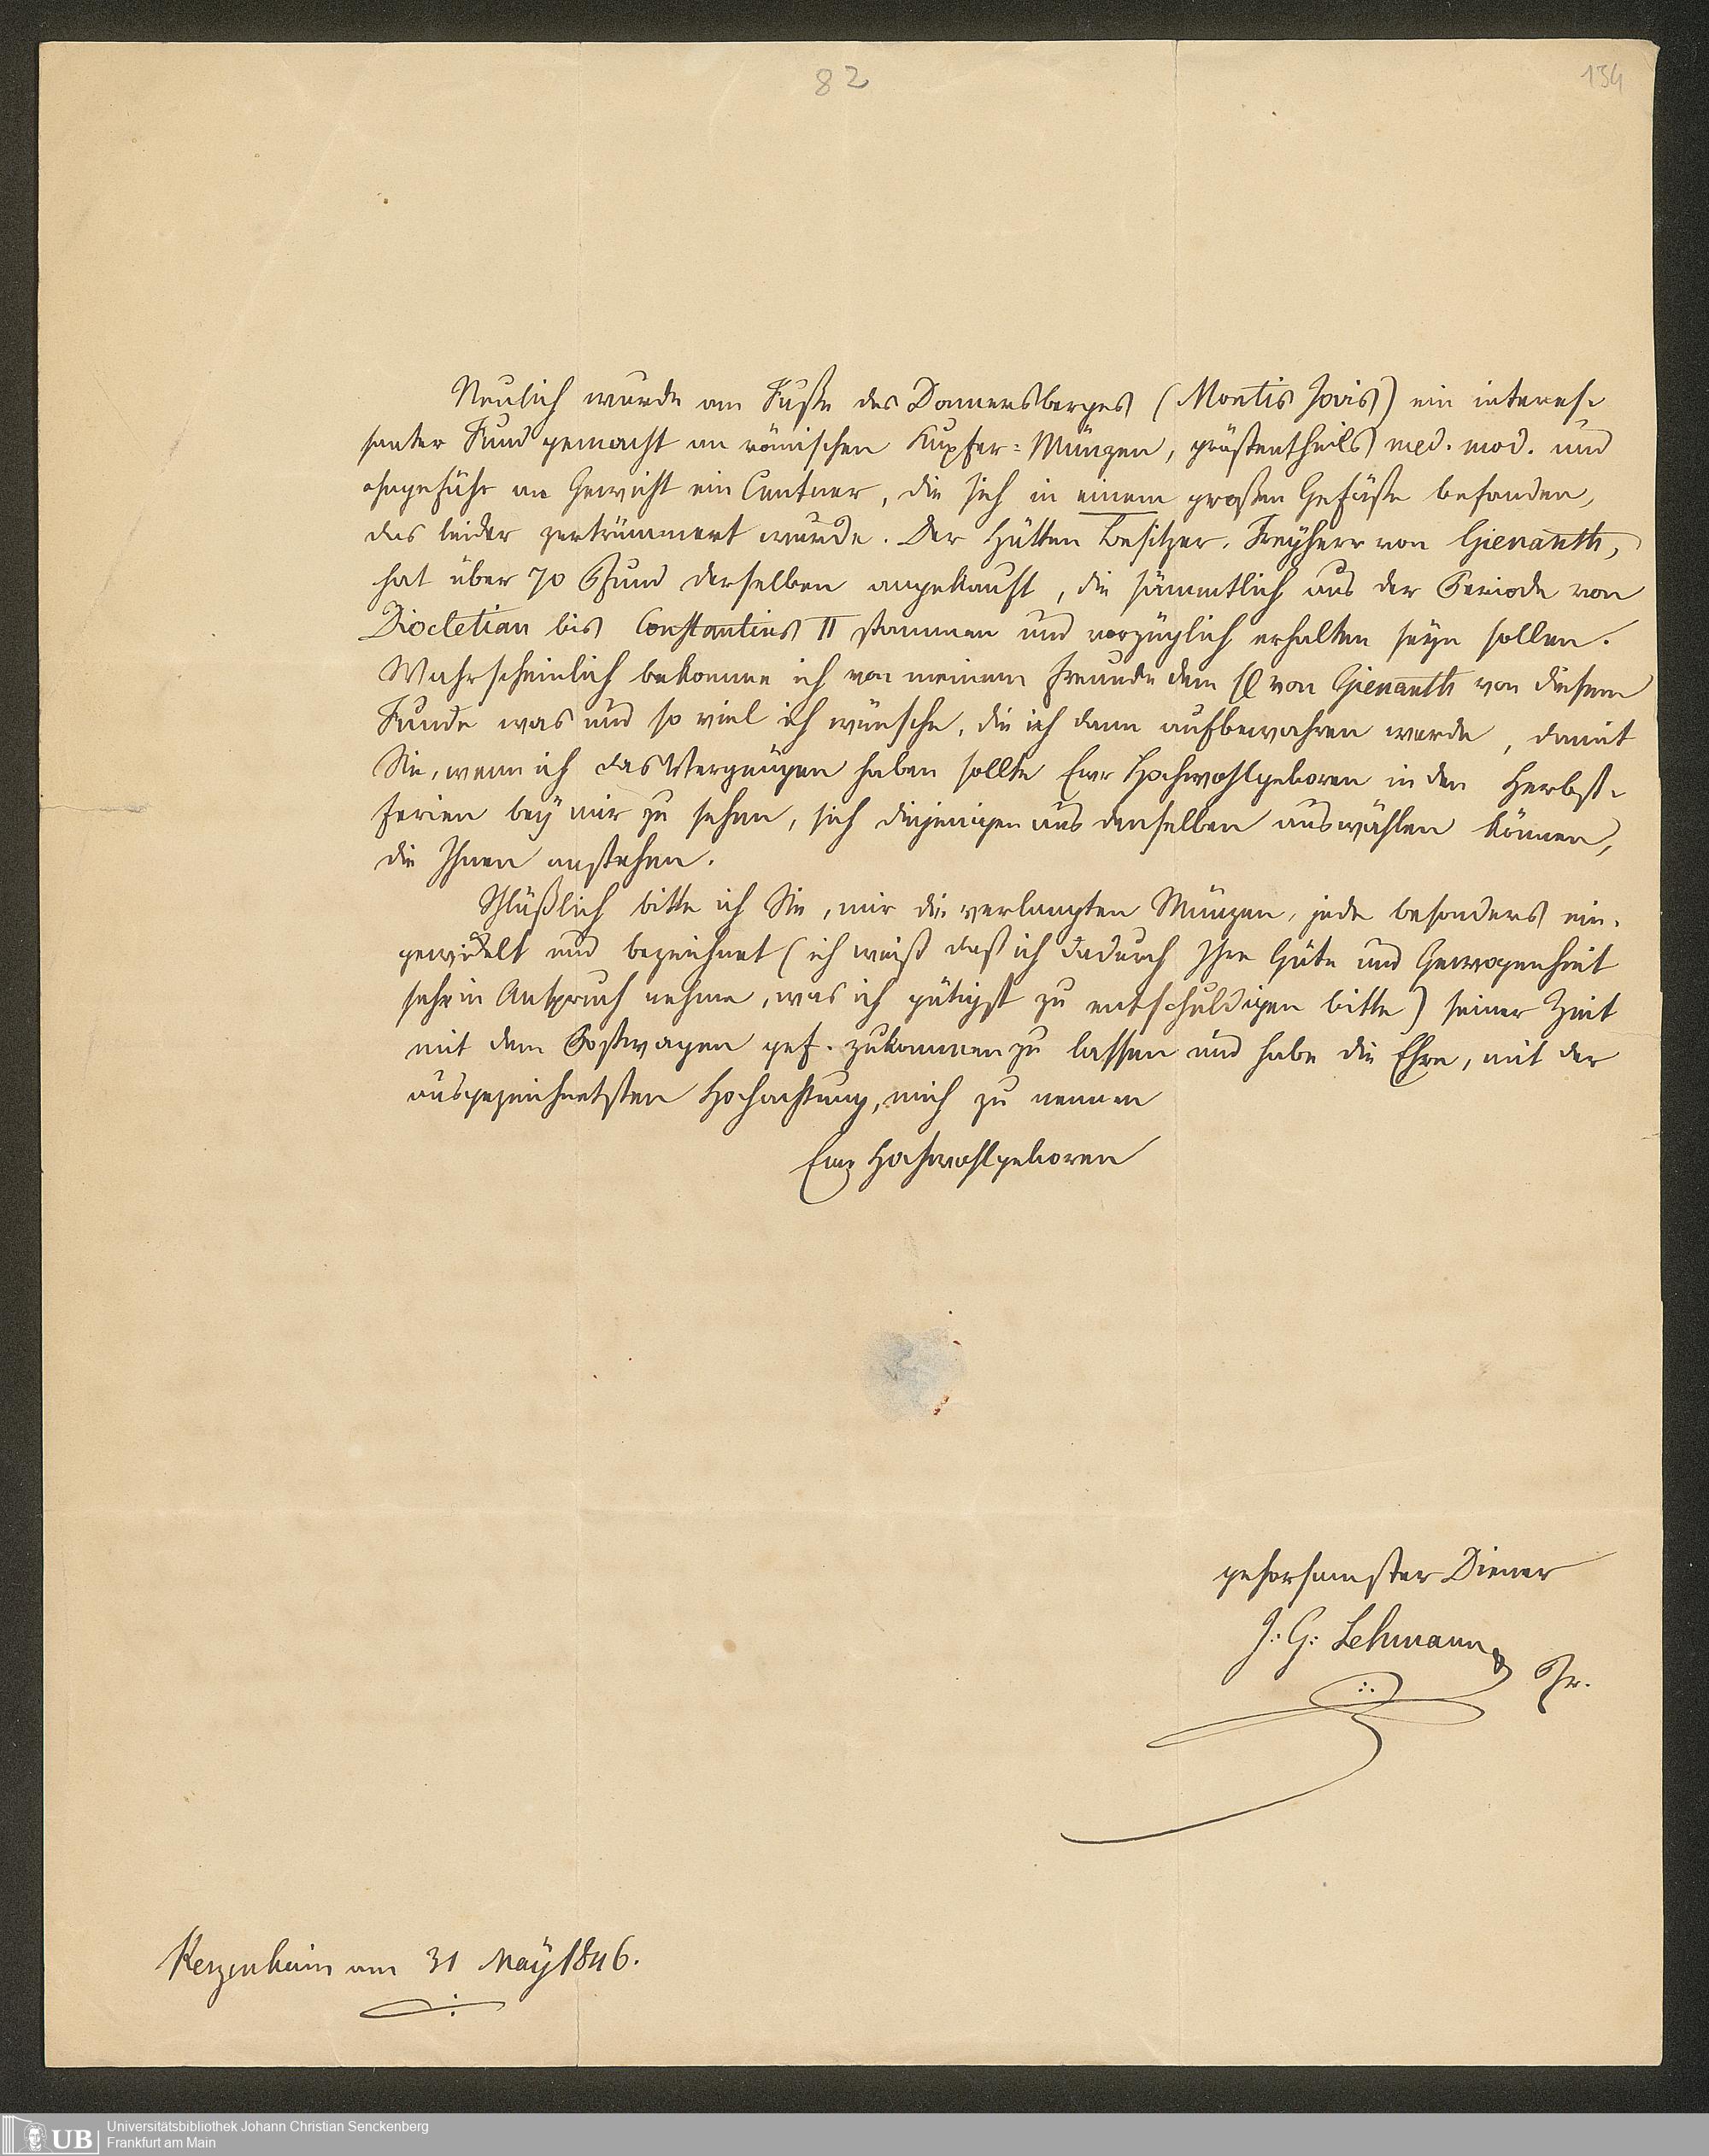 82
134
Neulich wurde am Fuße des Donnersberges (Montis Jovis) ein interes-
santer Fund gemacht an römischen Kupfer-Münzen, größtentheils med. mod. und
ohngefähr am Gewicht ein Centner, die sich in einem großen Gefäße befanden,
das leider zertrümmert wurde. Der Hütten Besitzer, Freyherr von Gienanth,
hat über 70 Pfund derselben angekauft, die sämmtlich aus der Periode von
Diocletian bis Constantius II stammen und vorzüglich erhalten seyn sollen.
Wahrscheinlich bekomme ich von meinem Freunde dem H von Gienanth von diesem
Funde was und so viel ich wünsche, die ich dann aufbewahren werde, damit
Sie, wenn ich das Vergnügen haben sollte Euer Hochwohlgeboren in den Herbst-
ferien bey mir zu sehen, sich diejenigen aus denselben auswählen können,
die Ihnen anstehen.
Schlüßlich bitte ich Sie, mir die verlangten Münzen, jede besonders ein-
gewickelt und bezeichnet (ich weiß daß ich dadurch Ihre Güte und Gewogenheit
sehr in Anspruch nehme, was ich gütigst zu entschuldigen bitte) seiner Zeit
mit dem Postwagen gef. zukommen zu lassen und habe die Ehre, mit der
ausgezeichnetsten Hochachtung, mich zu nennen
Euer Hochwohlgeboren
gehorsamster Diener
J: G: Lehmann
Pfr.
Kerzenheim am 31 May 1846.
UB
Universitätsbibliothek Johann Christian Senckenberg
Frankfurt am Main